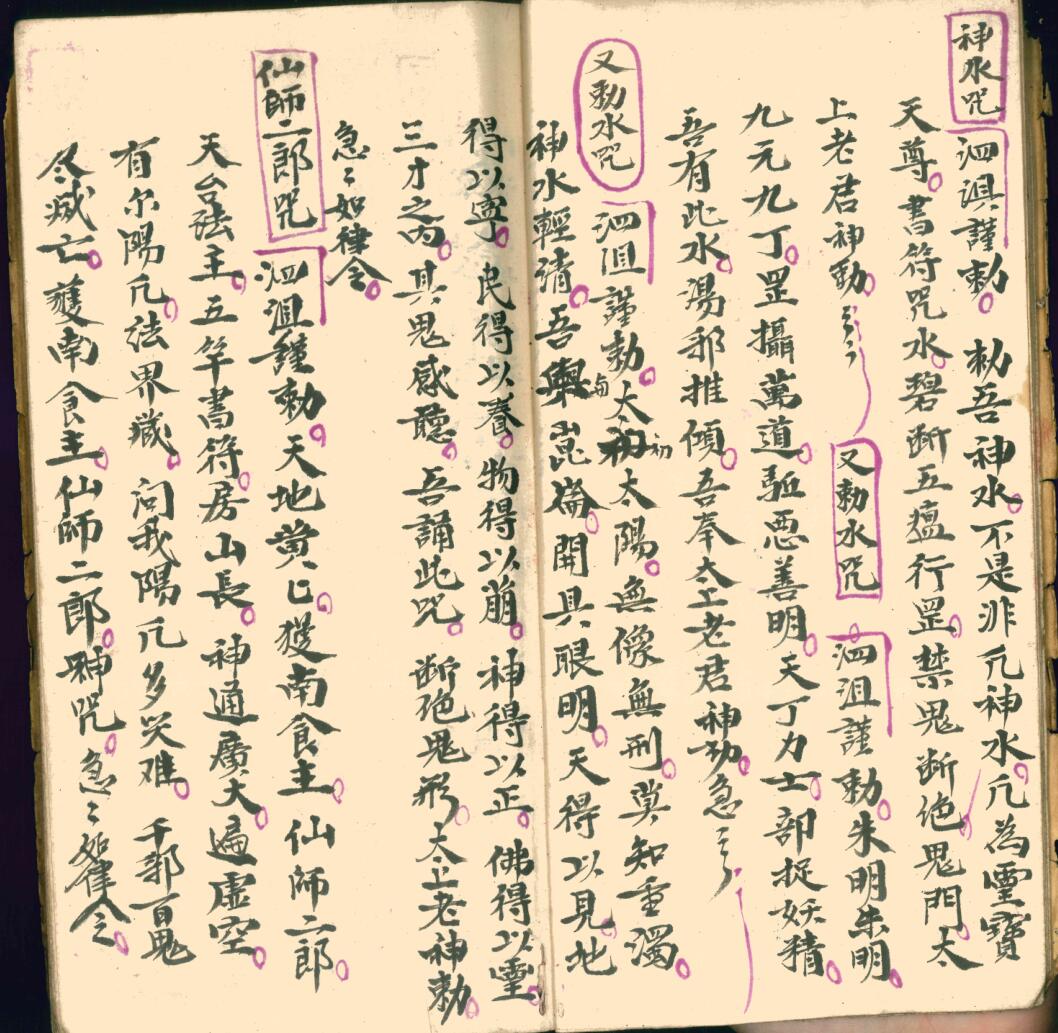 神水咒 泗沮謹勅 勅吾神水不是非凢神水凢為霊寶
天尊書符咒水碧断五瘟行罡禁鬼断绝鬼門太
上老君神勅 又勅水咒 泗沮謹勅朱明朱明
九元九丁罡攝萬道驅恶善明天丁力士部捉妖精
吾有此水湯邪推傾吾奉太上老君神功急
又勅水咒 泗沮謹勅太初太陽無像無刑莫知重濁
神水輕清吾與崑崙開具眼明天得以見地
得以寧民得以養物得以崩神得以正佛得以霊
三才之内具鬼感聽吾誦此咒断绝鬼形太上老神勅
急〻如律令
仙師二郎咒 泗沮謹勅天地黄〻㔾獲南食主仙師二郎
天台法主五竿書符房山長神通廣大遍虚空
有尔陽凢法界藏问我陽凢多災难千郭百鬼
尽减亡獲南食主仙師二郎神咒急〻如律令